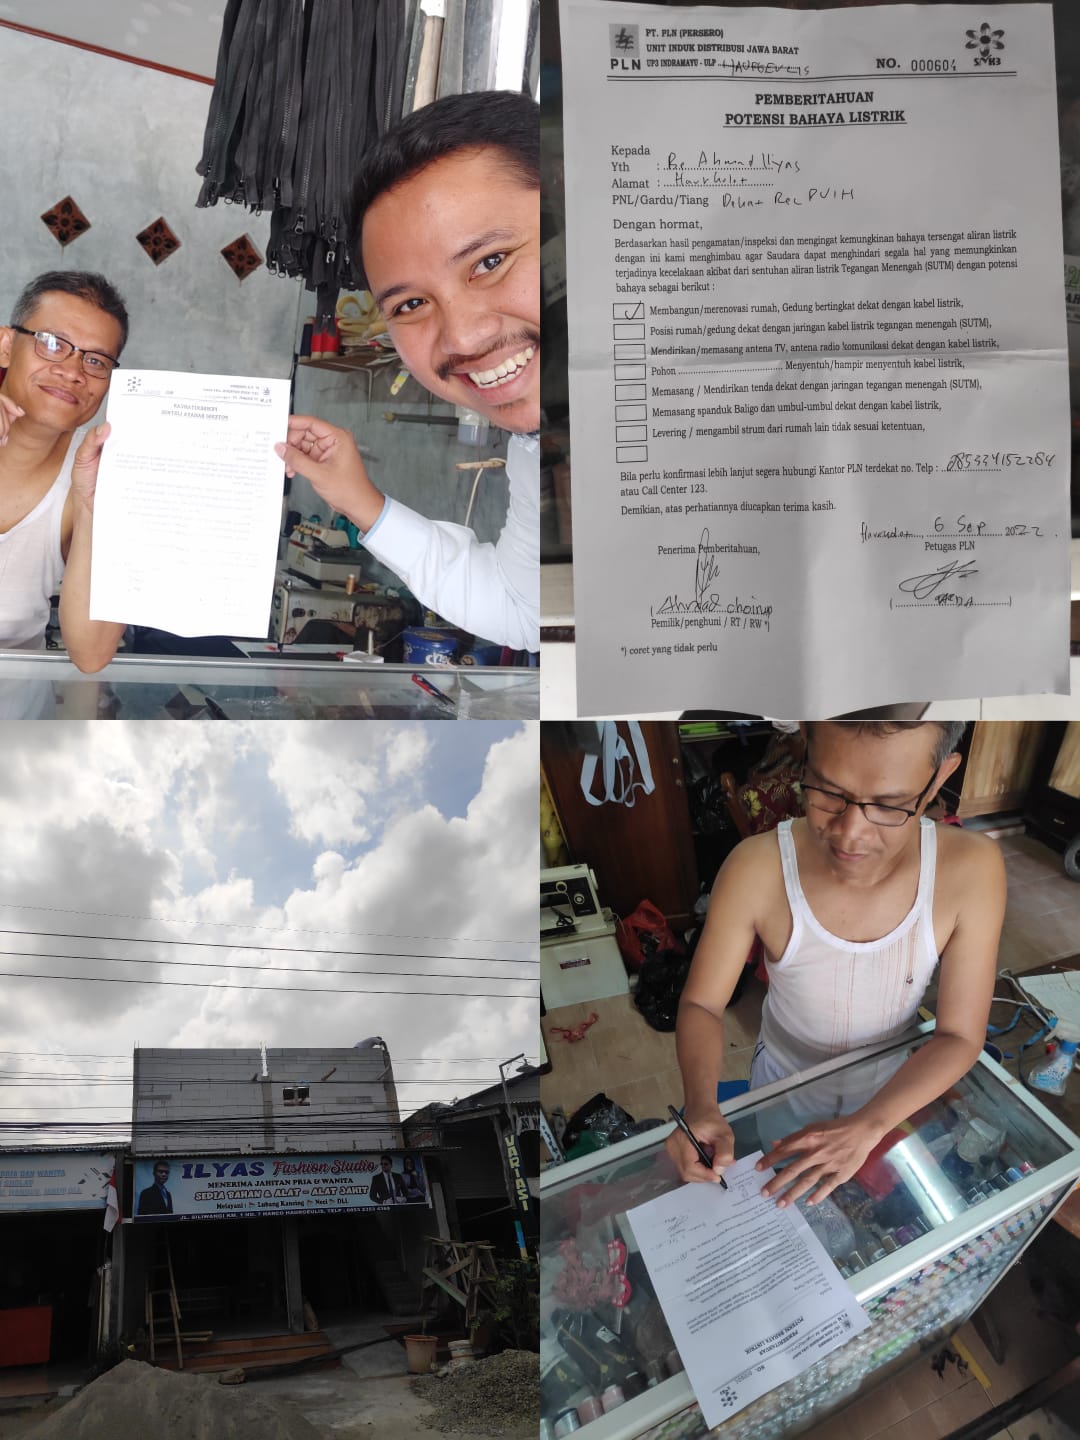 PLN
PT. PLN (PERSERO)
UNIT INDUK DISTRIBUSI JAWA BARAT
UP3 INDRAMAYU - ULP HAURGEULIS
NO. 000604
SMK3
PEMBERITAHUAN
POTENSI BAHAYA LISTRIK
Kepada
Yth : Be Ahmad Iliyas
Alamat :
PNL/Gardu/Tiang
Dengan hormat,
Berdasarkan hasil pengamatan/inspeksi dan mengingat kemungkinan bahaya tersengat aliran listrik
dengan ini kami menghimbau agar Saudara dapat menghindari segala hal yang memungkinkan
terjadinya kecelakaan akibat dari sentuhan aliran listrik Tegangan Menengah (SUTM) dengan potensi
bahaya sebagai berikut :
Membangun/merenovasi rumah, Gedung bertingkat dekat dengan kabel listrik,
Posisi rumah/gedung dekat dengan jaringan kabel listrik tegangan menengah (SUTM),
Mendirikan/memasang antena TV, antena radio komunikasi dekat dengan kabel listrik,
Pohon ........ Menyentuh/hampir menyentuh kabel listrik,
Memasang / Mendirikan tenda dekat dengan jaringan tegangan menengah (SUTM),
Memasang spanduk Baligo dan umbul-umbul dekat dengan kabel listrik,
Levering / mengambil strum dari rumah lain tidak sesuai ketentuan,
Bila perlu konfirmasi lebih lanjut segera hubungi Kantor PLN terdekat no. Telp : 085334152284
atau Call Center 123.
Demikian, atas perhatiannya diucapkan terima kasih.
6 Sep 2022.
Penerima Pemberitahuan,
Petugas PLN
Pemilik/penghuni / RT / RW *)
*) coret yang tidak perlu
PRIA DAN WANITA
ILYAS Fashion Studio
MENERIMA JAHITAN PRIA & WANITA
SEDIA BAHAN & ALAT - ALAT JAHIT
Melayani : Lubang Kancing Neci DLL
JL. SILIWANGI KM. 1 NO. 7 HANCO HAURGEULIS, TELP :
VARIASI
PEMBERITAHUAN
POTENSI BAHAYA LISTRIK